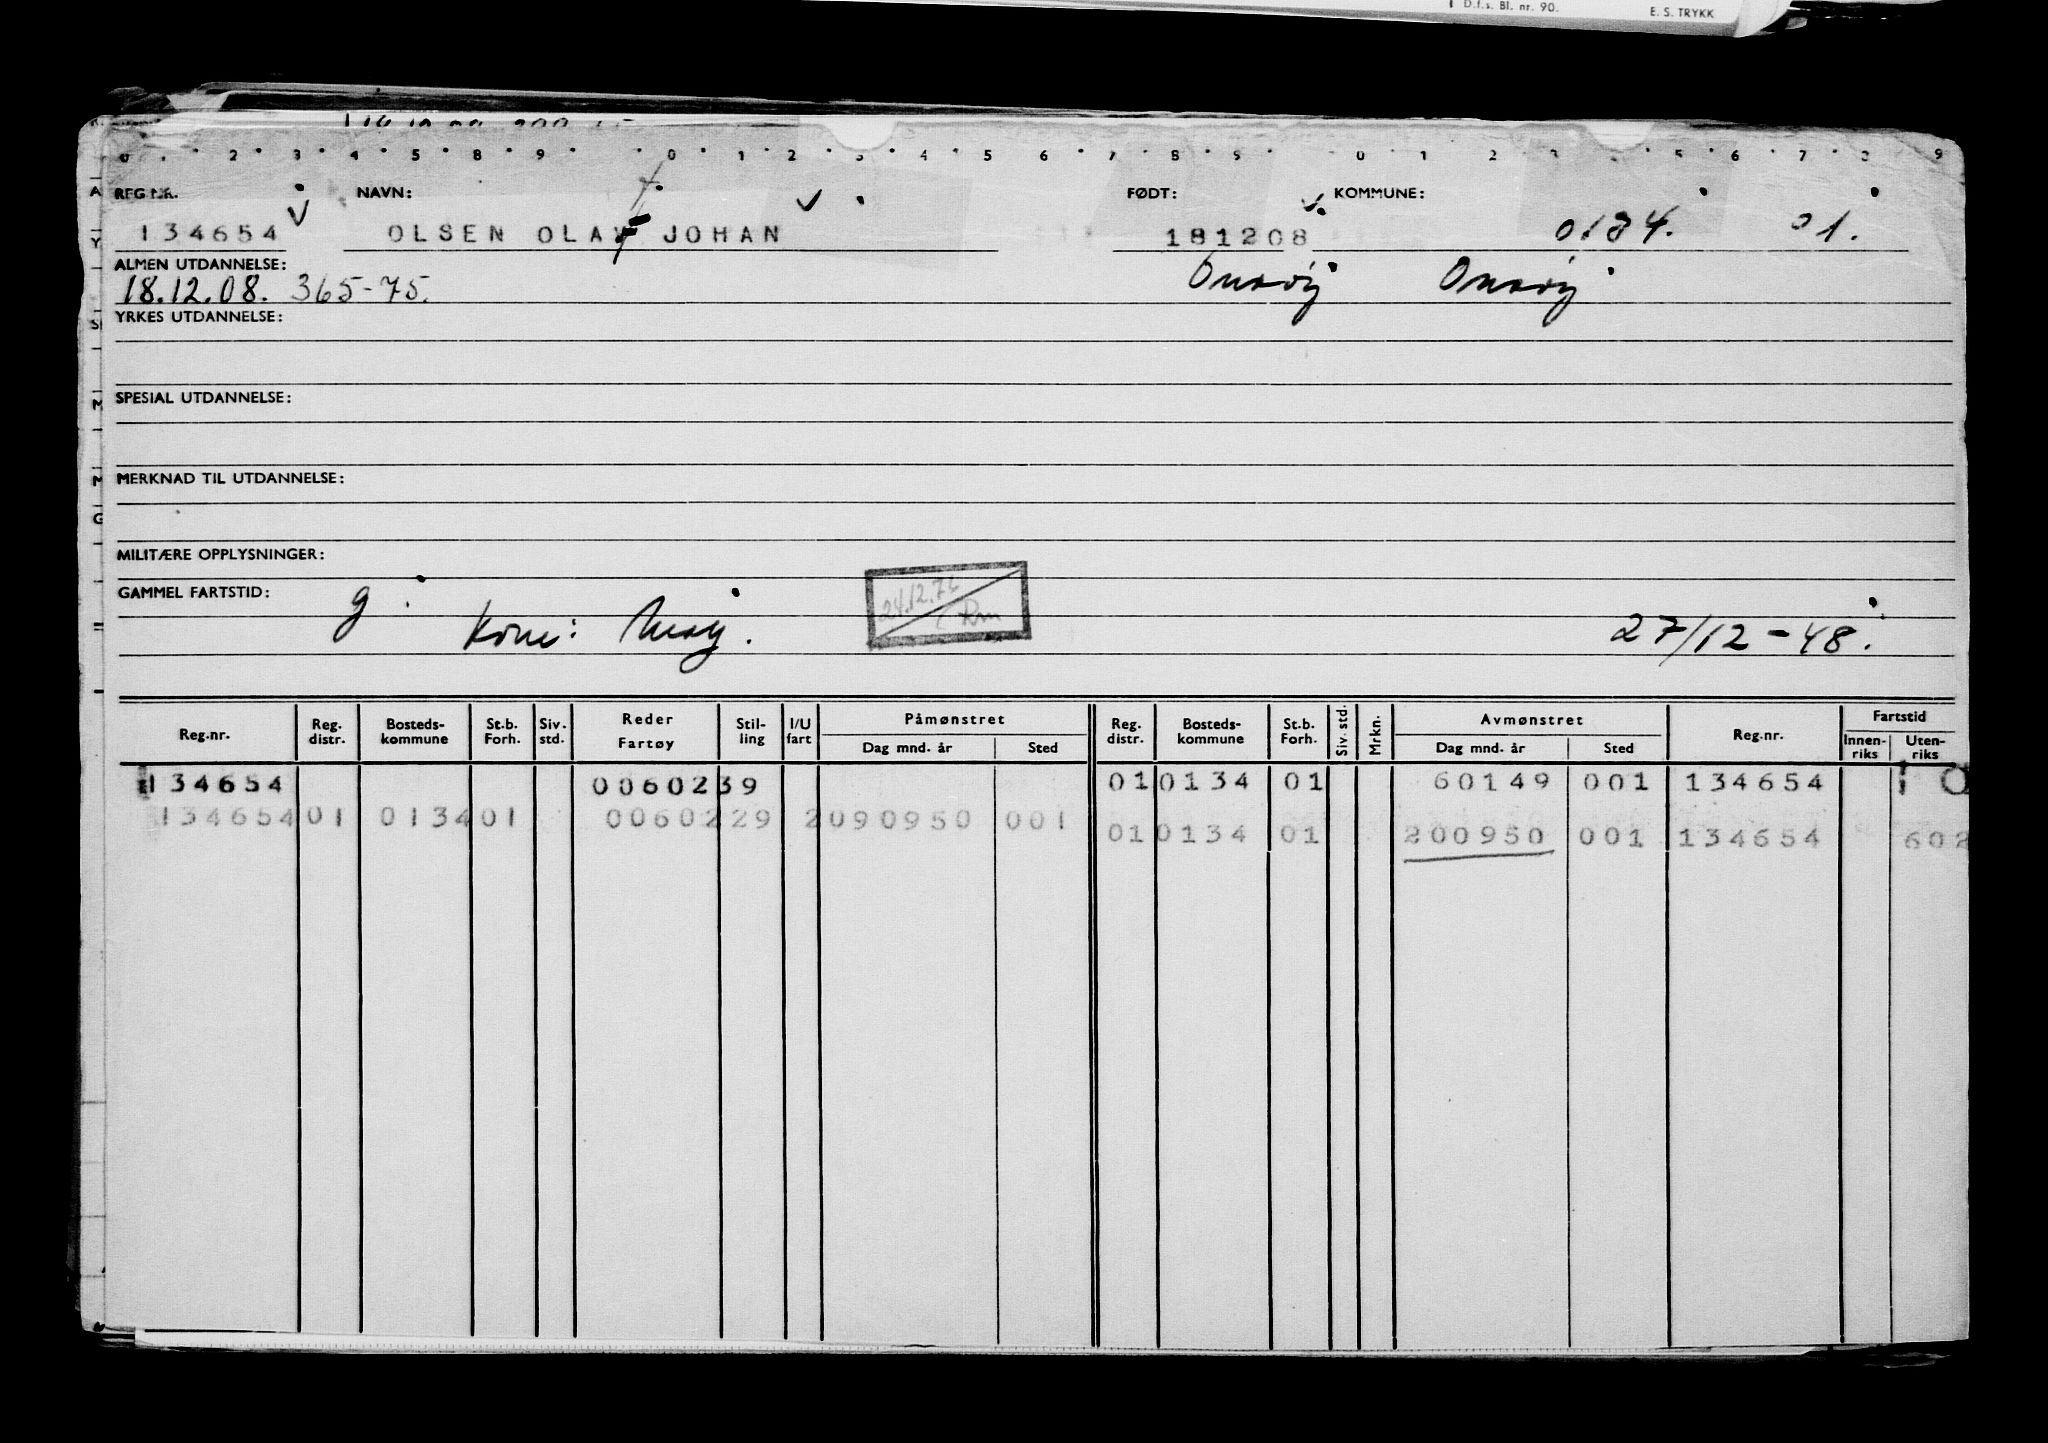 D.f.s. Bl. nr. 90. E. S. TRYKK
0 2 3 4 5 8 9 0 1 2 3 4 5 6 7 8 9 0 1 2 3 5 6 7 8 9
REG.NR. NAVN: FØDT: KOMMUNE:
134654 OLSEN OLAF JOHAN 181208 0134. 01.
ALMEN UTDANNELSE:
18.12.08. 365-75. Onsøy Onsøy
YRKES UTDANNELSE:
SPESIAL UTDANNELSE:
MERKNAD TIL UTDANNELSE:
MILITÆRE OPPLYSNINGER:
GAMMEL FARTSTID: g
Kone: May. 27/12-48.
Reg.nr. Reg. distr. Bosteds-kommune St.b. Forh. Siv. std. Reder Fartøy Stil-ling I/U fart Påmønstret Dag mnd. år Sted Reg. distr. Bosteds-kommune St.b. Forh. Siv. std. Mrkn. Avmønstret Dag mnd. år Sted Reg.nr. Fartstid Innen-riks Uten-riks
134654 0060239 01 0134 01 60149 001 134654 10
134654 01 0134 01 0060229 2 090950 001
01 0134 01 200950 001 134654 602